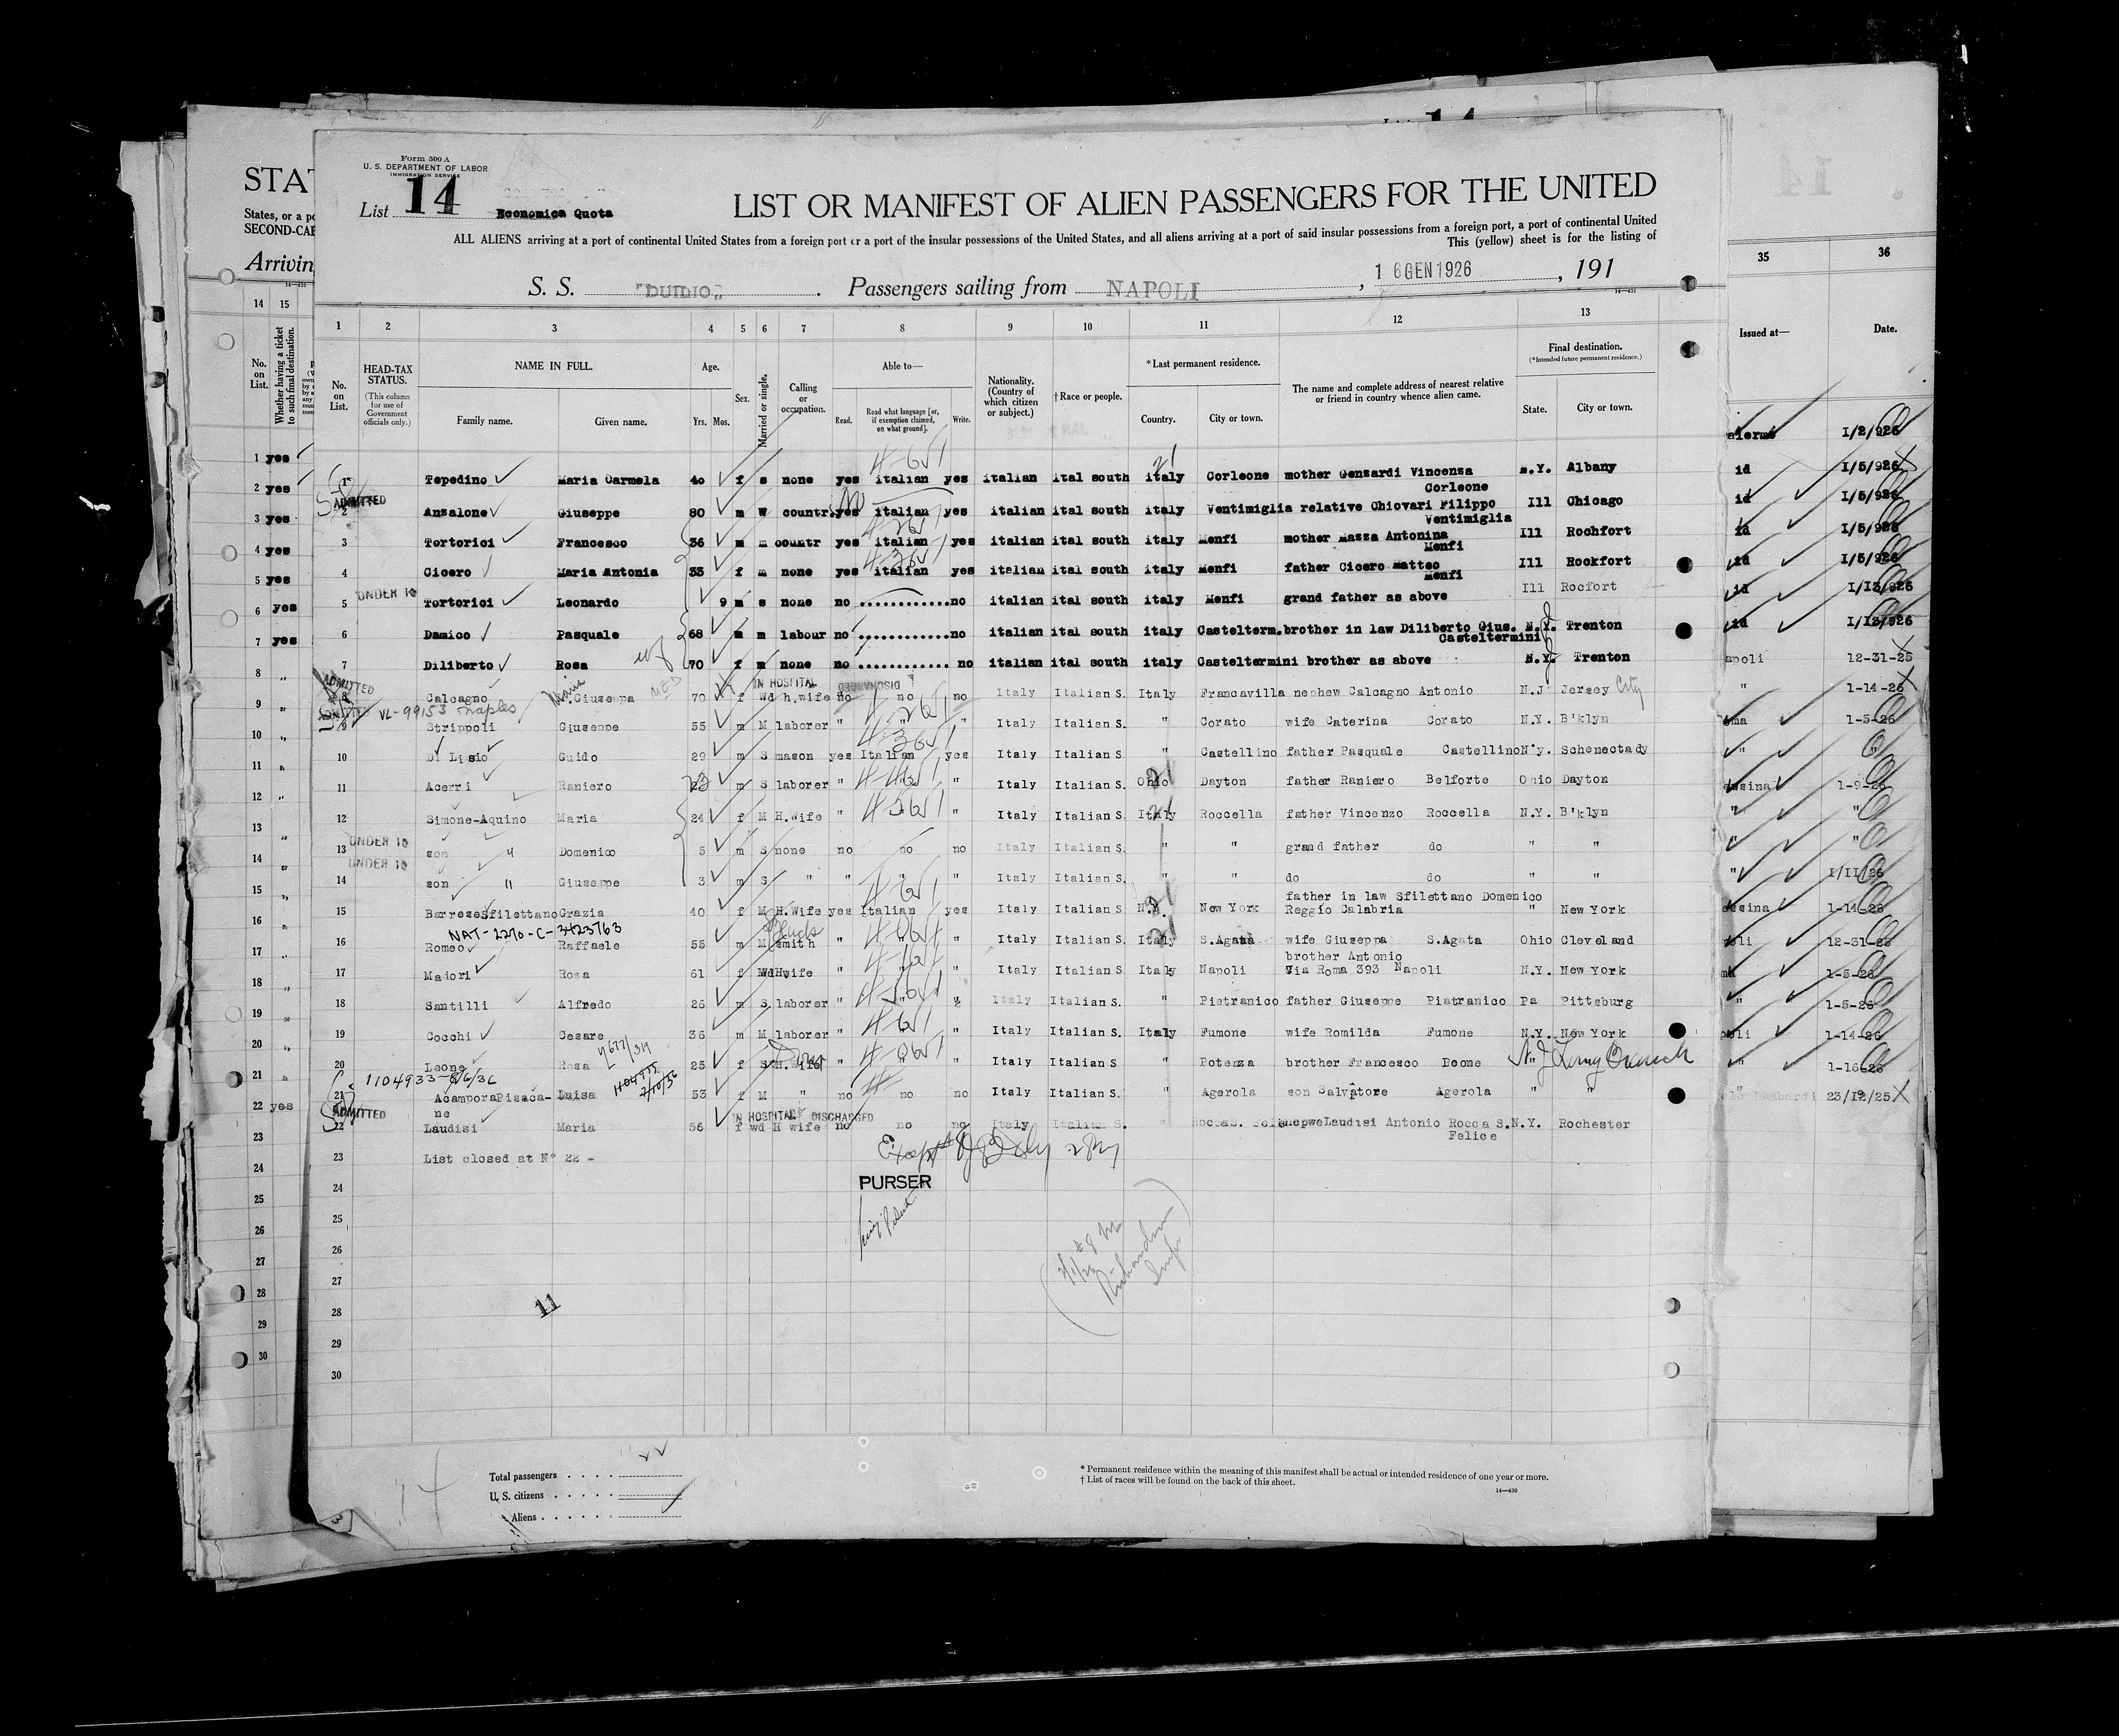 Form 500 A
U. S. DEPARTMENT OF LABOR
IMMIGRATION SERVICE
List 14
Economica Quota
LIST OR MANIFEST OF ALIEN PASSENGERS FOR THE UNITED
ALL ALIENS arriving at a port of continental United States from a foreign port or a port of the insular possessions of the United States, and all aliens arriving at a port of said insular possessions from a foreign port, a port of continental United
This (yellow) sheet is for the listing of
S. S. "DUILIO" . Passengers sailing from NAPOLI , 16GEN1926 , 191
14—431
STAT
States, or a po
SECOND-CAB
Arrivin
14—431
14 15
No. on List.
Whether having a ticket to such final destination.
35 36
Issued at— Date.
1 2 3 4 5 6 7 8 9 10 11 12 13
No. on List.
HEAD-TAX STATUS.
(This column for use of Government officials only.)
NAME IN FULL.
Family name. Given name.
Age.
Yrs. Mos.
Sex.
Married or single.
Calling or occupation.
Able to—
Read. Read what language [or, if exemption claimed, on what ground]. Write.
Nationality. (Country of which citizen or subject.)
†Race or people.
*Last permanent residence.
Country. City or town.
The name and complete address of nearest relative or friend in country whence alien came.
Final destination.
(*Intended future permanent residence.)
State. City or town.
1 Tepedino Maria Carmela 40 f s none yes italian yes italian ital south italy Corleone mother Genzardi Vincenza N.Y. Albany
Corleone
ADMITTED
2 Anzalone Giuseppe 80 m W countr. yes italian yes italian ital south italy Ventimiglia relative Chiovari Filippo Ill Chicago
Ventimiglia
3 Tortorici Francesco 36 m m countr yes italian yes italian ital south italy Menfi mother Mazza Antonina Ill Rochfort
Menfi
4 Cicero Maria Antonia 33 f m none yes italian yes italian ital south italy Menfi father Cicero Matteo Ill Rockfort
Menfi
UNDER 16
5 Tortorici Leonardo 9 m s none no ............no italian ital south italy Menfi grand father as above Ill Rocfort
6 Damico Pasquale 68 m m labour no ............no italian ital south italy Castelterm.brother in law Diliberto Gius. N.Y. Trenton
Casteltermini
7 Diliberto Rosa 70 f m none no ............ no italian ital south italy Casteltermini brother as above N.Y. Trenton
ADMITTED
IN HOSPITAL DISCHARGED
8 Calcagno M.Giuseppa 70 f Wd h.wife no no no Italy Italian S. Italy Francavilla nephew Calcagno Antonio N.J Jersey City
VL-99153 Naples
9 Strippoli Giuseppe 55 m M laborer " " " Italy Italian S. " Corato wife Caterina Corato N.Y. B'klyn
10 Di Lisio Guido 29 m S mason yes Italian yes Italy Italian S " Castellino father Pasquale Castellino N.y. Schenectady
11 Acerri Raniero 23 m S laborer " " " Italy Italian S. Ohio Dayton father Raniero Belforte Ohio Dayton
12 Simone-Aquino Maria 24 f M H.wife " " " Italy Italian S. Italy Roccella father Vincenzo Roccella N.Y. B'klyn
UNDER 16
13 son " Domenico 5 m S none no no no Italy Italian S. " " grand father do " "
UNDER 16
14 son " Giuseppe 3 m S " " " " Italy Italian S. " " do do " "
father in law Sfilettano Domenico
15 BarreseSfilettano Grazia 40 f M H.Wife yes Italian yes Italy Italian S N.Y. New York Reggio Calabria " New York
NAT-2270-C-3423763
16 Romeo Raffaele 55 m M smith " " " Italy Italian S. Italy S.Agata wife Giuseppa S.Agata Ohio Cleveland
brother Antonio
17 Maiori Rosa 61 f Wd H.wife " " " Italy Italian S Italy Napoli Via Roma 393 Napoli N.Y. New York
18 Santilli Alfredo 26 m S laborer " " " Italy Italian S. " Pietranico father Giuseppe Piatranico Pa Pittsburg
19 Cocchi Cesare 36 m M laborer " " " Italy Italian S. Italy Fumone wife Romilda Fumone N.Y. New York
20 Leone Rosa 25 f S H.wife " " " Italy Italian S " Potenza brother Francesco Boone N.J. Long Branch
1104933-8/6/36
21 AcamporaPisaca- Luisa 53 f M " no no no Italy Italian S. " Agerola son Salvatore Agerola " "
ne
ADMITTED
IN HOSPITAL DISCHARGED
22 Laudisi Maria 56 f wd H wife no no no Italy Italian S. " Rocca S. Felice nepwe Laudisi Antonio Rocca S. N.Y. Rochester
Felice
23 List closed at N° 22 -
24
PURSER
25
26
27
28
29
30
11
1 yes
2 yes
3 yes
4 yes
5 yes
6 yes
7 yes
8 "
9 "
10 "
11 "
12 "
13 "
14 "
15 "
16 "
17 "
18 "
19 "
20 "
21 "
22 yes
23
24
25
26
27
28
29
30
alermo 1/2/926
id 1/5/926
id 1/5/926
id 1/5/926
id 1/5/926
id 1/13/926
id 1/13/926
apoli 12-31-25
" 1-14-26
oma 1-5-26
" "
essina 1-9-26
" "
" "
" 1/11/26
essina 1-14-26
poli 12-31-25
ma 1-5-26
" 1-5-26
poli 1-14-26
" 1-16-26
Lombardi 23/12/25
Total passengers . . . .
U. S. citizens . . . . .
Aliens . . . . . .
* Permanent residence within the meaning of this manifest shall be actual or intended residence of one year or more.
† List of races will be found on the back of this sheet.
14—430